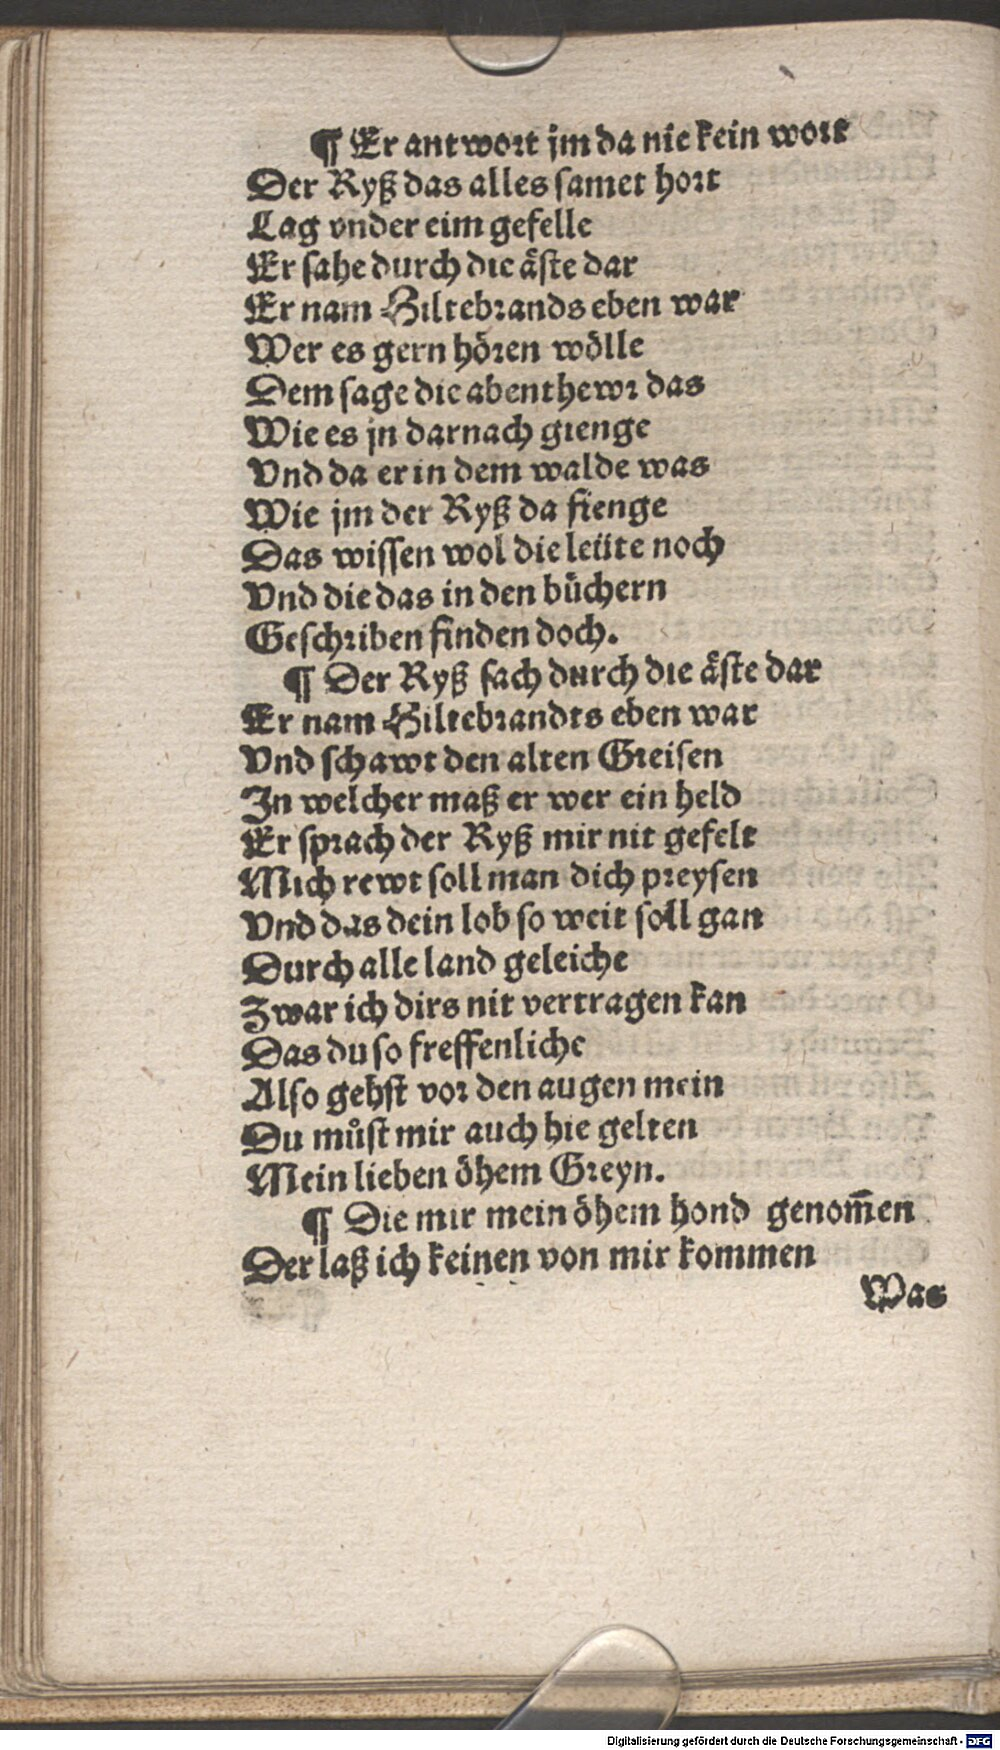 ¶ Er antwort jm da nie kein wort
Der Ryß das alles samet hort
Lag vnder eim gefelle
Er sahe durch die äste dar
Er nam Hiltebrands eben war
Wer es gern hören wölle
Dem sage die abenthewr das
Wie es jn darnach gienge
Vnd da er in dem walde was
Wie jm der Ryß da fienge
Das wissen wol die leüte noch
Vnd die das in den büchern
Geschriben finden doch.
¶ Der Ryß sach durch die äste dar
Er nam Hiltebrandts eben war
Vnd schawt den alten Greisen
In welcher maß er wer ein held
Er sprach der Ryß mir nit gefelt
Mich rewt soll man dich preysen
Vnd das dein lob so weit soll gan
Durch alle land geleiche
Zwar ich dirs nit vertragen kan
Das du so freffenliche
Also gehst vor den augen mein
Du můst mir auch hie gelten
Mein lieben öhem Greyn.
¶ Die mir mein öhem hond genom̄en
Der laß ich keinen von mir kommen
Was
Digitalisierung gefördert durch die Deutsche Forschungsgemeinschaft - DFG